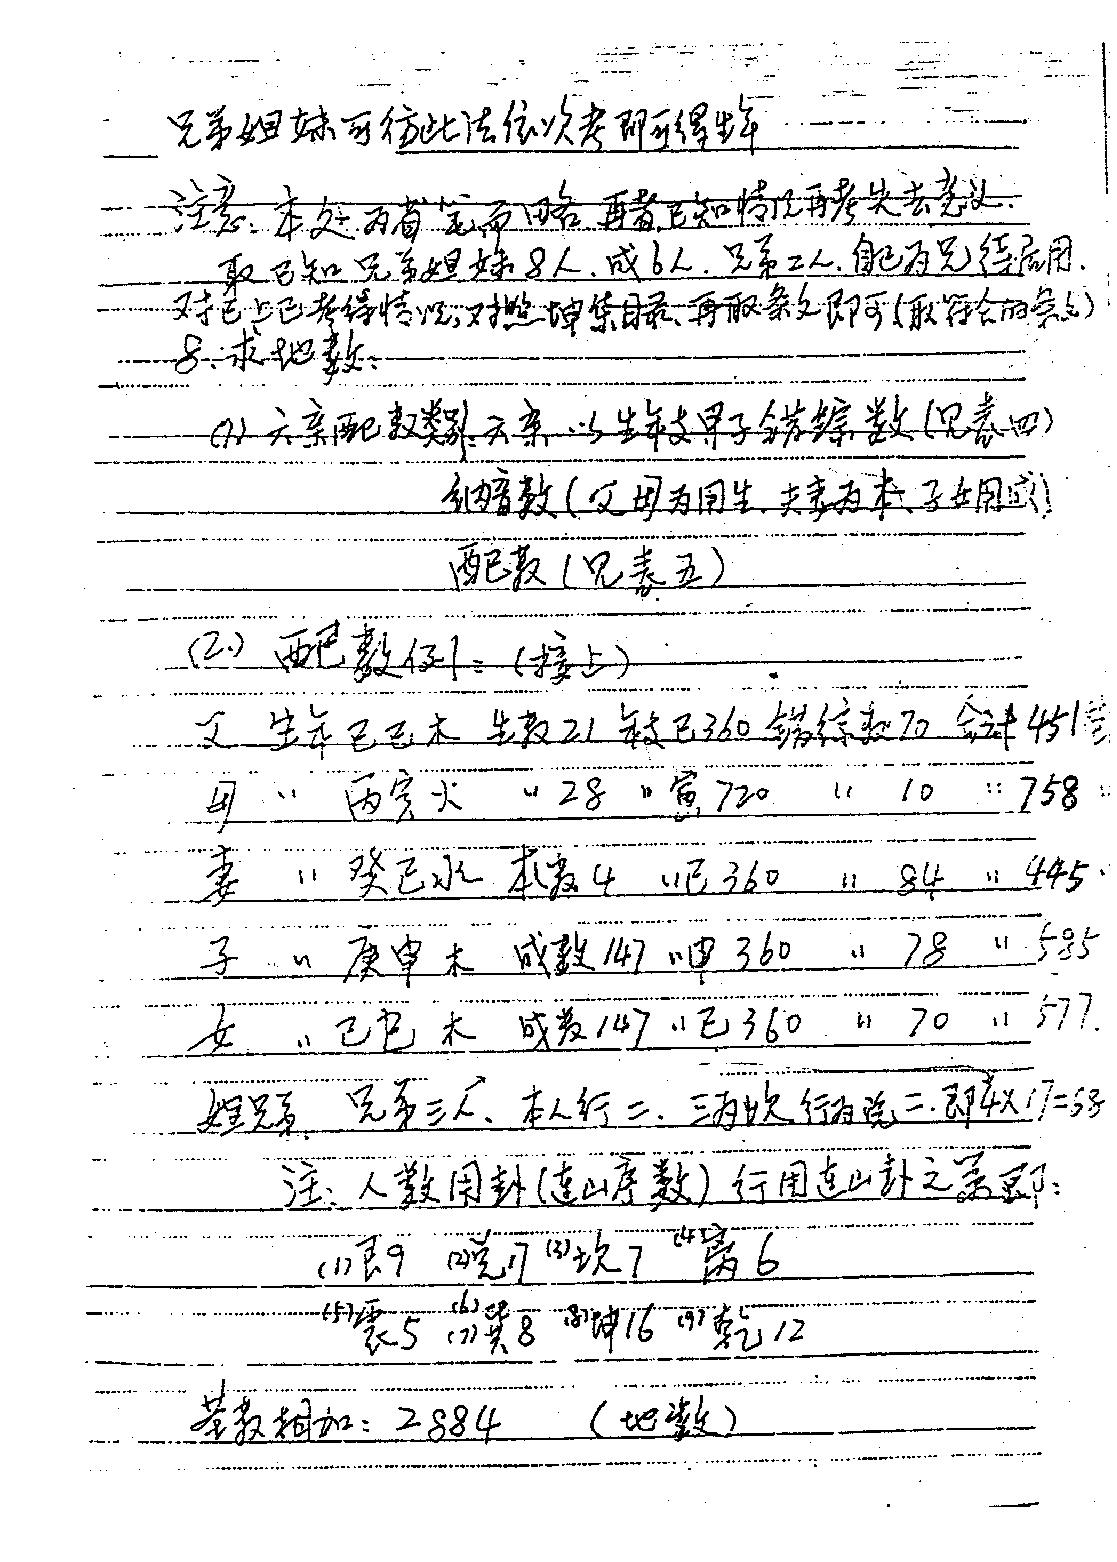 兄弟姐妹可仿此法依次考即可得生年
注意:本处为省笔而略,再者已知情况再考失去意义.
取已知兄弟姐妹8人.成6人.兄弟二人.自己为兄待后用.
对已上已考得情况,对照坤集目录、再取条文即可(取符合的条文)
8.求地数:
(1)六亲配数类别:六亲以生年支男子错综数(见表四)
纳音数(父母为用生.夫妻为本、子女用成)
配数(见表五)
(2.)配数例:(接上)
父 生年己巳木 生数21 年支巳360 错综数70 合计451
母 〃 丙寅火 〃28 〃寅720 〃 10 〃 758
妻 〃 癸巳水 本数4 〃巳360 〃 84 〃 445
子 〃 庚申木 成数147 〃申360 〃 78 〃 585
女 〃 己巳木 成数147 〃巳360 〃 70 〃 577.
兄弟三人、本人行二、三为坎,行为兑二.即4X17=68
注:人数用卦(连山序数)行用连山卦之策即:
(1)艮9 (2)兑17 (3)坎7 (4)离6
(5)震5 (6)(7)巽8 (8)坤16 (9)乾12
基数相加:2884 (地数)